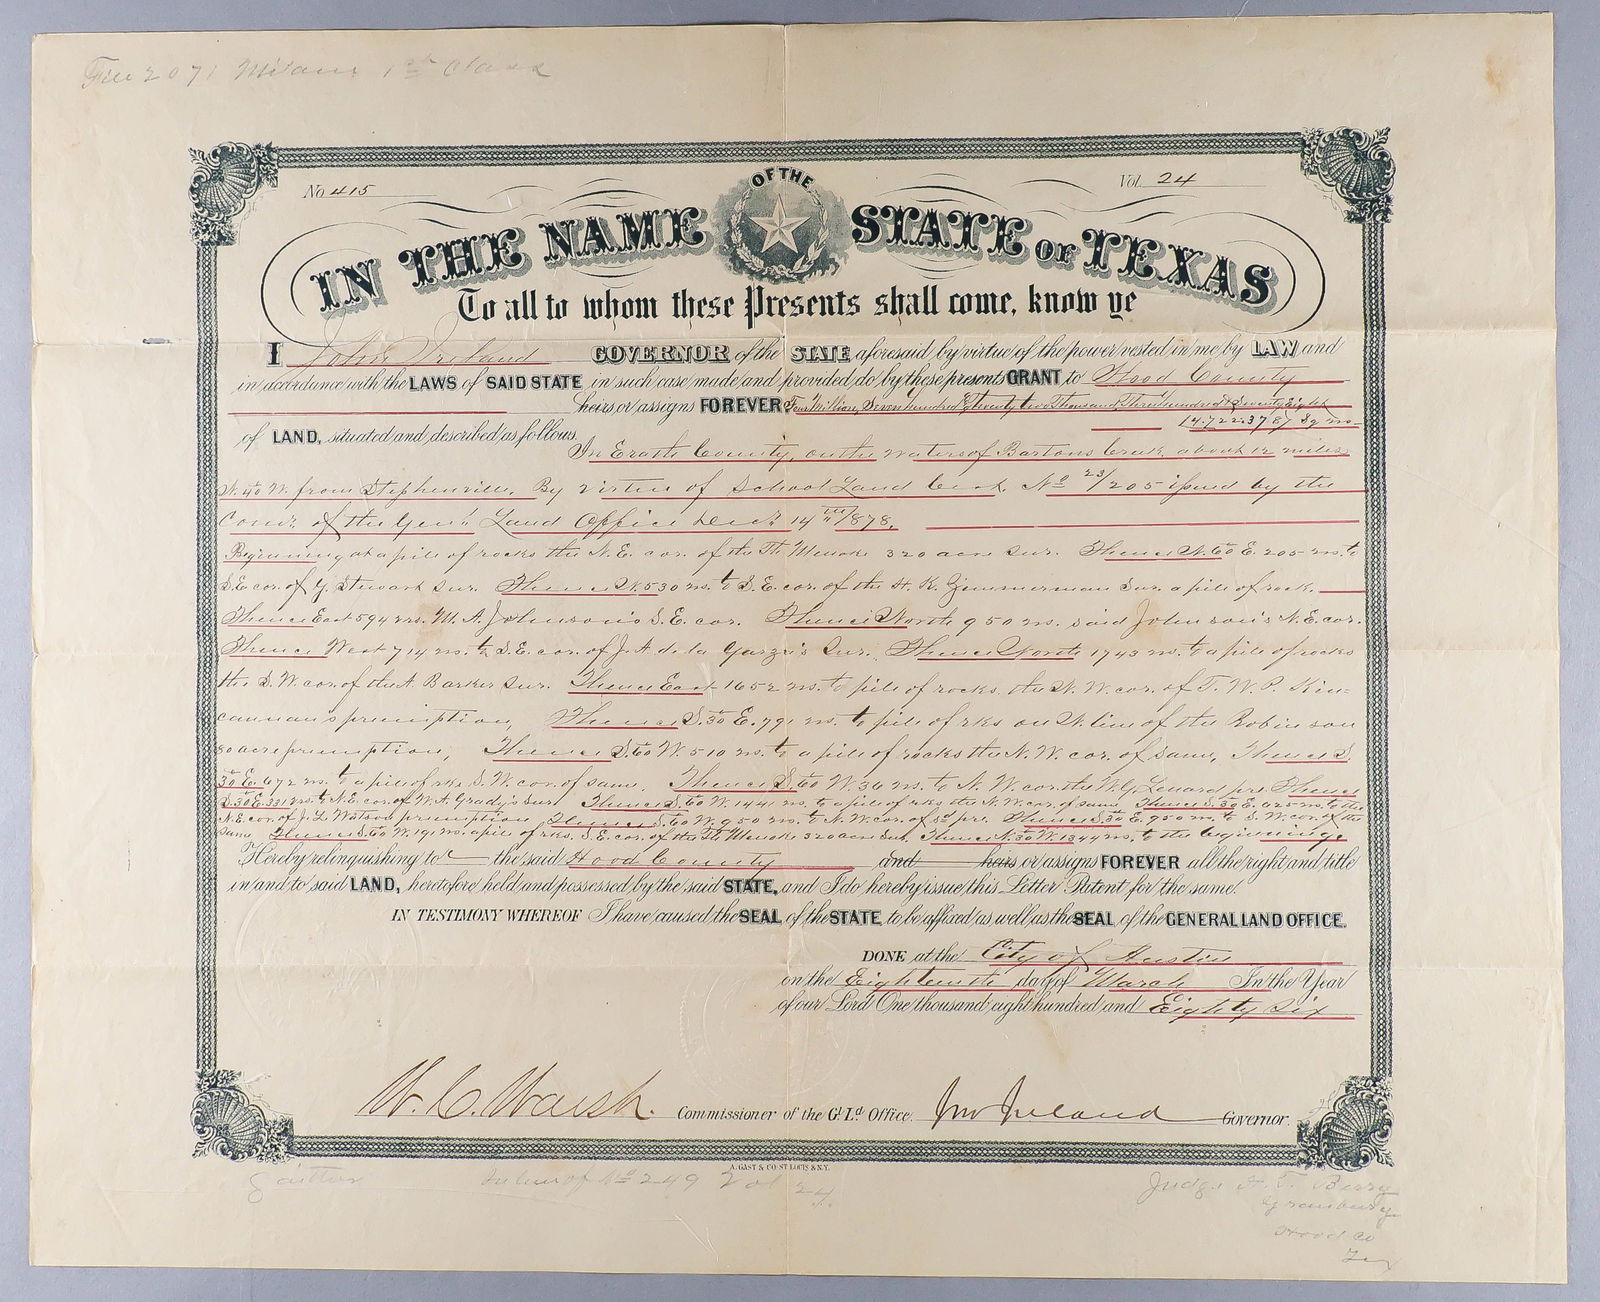 File 2071 Milam 1st Class
No 415
Vol. 24
IN THE NAME OF THE STATE OF TEXAS
To all to whom these Presents shall come, know ye
I John Ireland GOVERNOR of the STATE aforesaid by virtue of the power vested in me by LAW and
in accordance with the LAWS of SAID STATE in such case made and provided do by these presents GRANT to Hood County
heirs or assigns FOREVER Four Million, Seven hundred & twenty two thousand, Three hundred & Seventy Eight
14.722.378/ Sq vrs
of LAND, situated and described as follows.
In Erath County, on the waters of Bartons Creek, about 12 miles
N. 40 W. from Stephenville, By virtue of School Land Cert. No 23/205 issued by the
Comr. of the Genl. Land Office Decr. 14th 1878,
Beginning at a pile of rocks the N. E. cor. of the Th. Menoke 320 acre Sur. Thence N. 60 E. 205 vrs. to
S. E. cor. of G. Stewart Sur. Thence N. 530 vrs. to S. E. cor. of the H. K. Zimmerman Sur. a pile of rock.
Thence East 594 vrs. M. A. Johnson's S. E. cor. Thence North 950 vrs. said Johnson's N. E. cor.
Thence West 714 vrs. to S. E. cor. of J. A de la Garza's Sur. Thence North 1743 vrs. to a pile of rocks
the S. W. cor. of the A. Barker Sur. Thence East 1652 vrs. to pile of rocks the N. W. cor. of T. W. P. Kin-
cannan's premption, Thence S. 30 E. 791 vrs. to pile of rks on N. line of the Robinson
80 acre premption, Thence S. 60 W. 510 vrs. to a pile of rocks the N. W. cor. of same, Thence S.
30 E. 672 vrs. to a pile of rks. S. W. cor. of same. Thence S. 60 W. 36 vrs. to N. W. cor. the W. G. Lenard pre. Thence
S. 30 E. 331 vrs. to N. E. cor. of W. A. Grady's Sur. Thence S. 60 W. 1441 vrs. to a pile of rks the N. W. cor. of same Thence S. 30 E. 625 vrs. to the
N. E. cor. of J. L. Watson premption Thence S. 60 W. 950 vrs. to N. W. cor. of sd pre. Thence S. 30 E. 950 vrs. to S. W. cor. of the
same Thence S. 60 W. 191 vrs. a pile of rks. S. E. cor. of the Th. Menoke 320 acre Sur. Thence N. 30 W. 1344 vrs. to the beginning.
Hereby relinquishing to the said Hood County and heirs or assigns FOREVER all the right and title
in and to said LAND, heretofore held and possessed by the said STATE, and I do hereby issue this Letter Patent for the same.
IN TESTIMONY WHEREOF I have caused the SEAL of the STATE to be affixed as well as the SEAL of the GENERAL LAND OFFICE.
DONE at the City of Austin
on the Eighteenth day of March In the Year
of our Lord One thousand eight hundred and Eighty Six
W. C. Walsh. Commissioner of the Gl. Ld. Office. Jno Ireland Governor.
A. GAST & CO. ST LOUIS & N.Y.
Gaither
In lieu of No 249 Vol 24
Judge H. T. Berry
Granbury
Hood Co
Tex